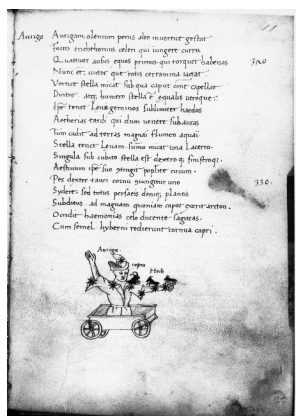 Auriga Aurigam, olenium pecus aleo in vertice gestat
Fortis erichthonius celeri qui iungere curru
Quattuor ausus equos primus qui torquet habenas 320
Nunc et, uictor quo rotis certamina iactat
Vertice stella micat sub qua caput
humero stella
Ipse tenet Leua geminos sublimiter haedos
Aetherias tardi qui dum uenere sub auras
Tum cadit ad terras magnai flumen aquai
Stella tenet Leuam micat una Lacerto
Singula sub cubito stella est dextero sinistroq.
ipse suo poplite circum
dexter tauri cornu uno 330
Sydere, sed totus persaeis denuq; plantis
Subditus ad magnam quoniam caput exerit arcton
Occidit haemonias celo ducente sagittas
Cum semel hyberni redierunt cornua capri
Auriga
capra
Hedi